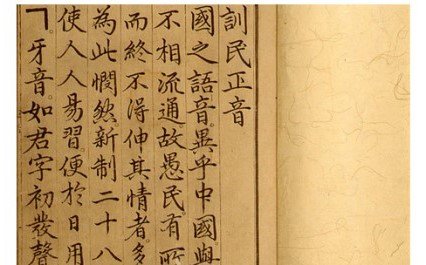 訓民正音
國之語音。異乎中國與
不相流通故愚民。有所
而終不得伸其情者。多
為此憫然新制二十八
使人人易習便於日用
ㄱ牙音。如君字初發聲